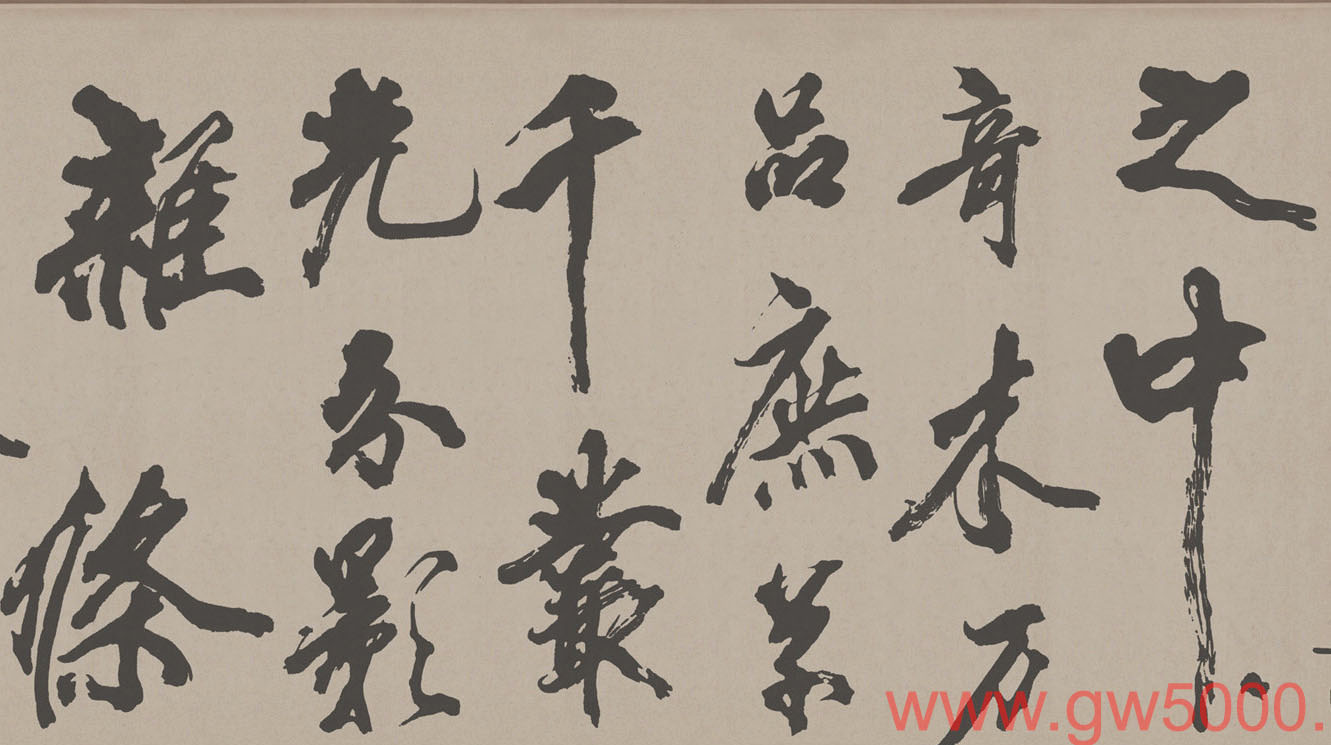 之中
竒木万
品庶草
千叢
光分影
雜條
www.gw5000.